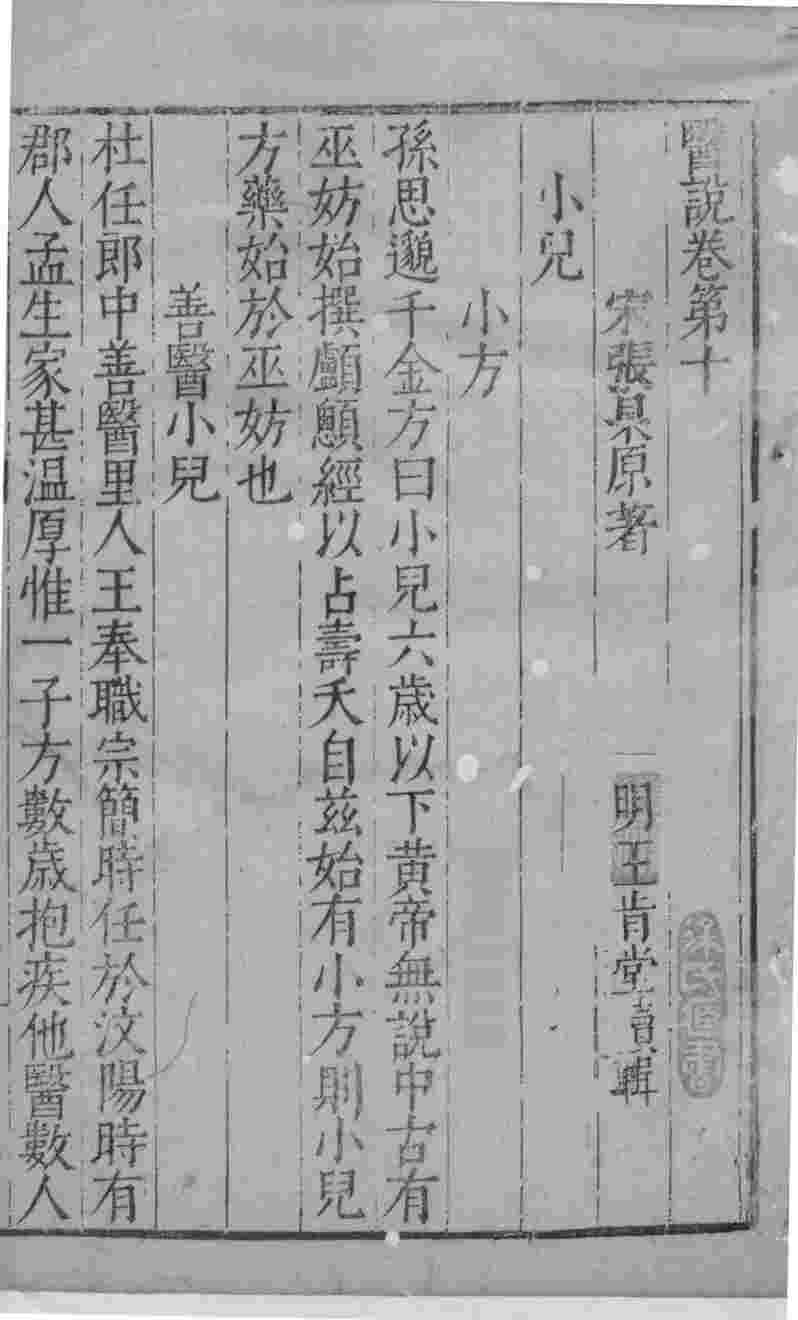 醫說卷第十
宋張杲原著
明王肯堂續輯
小兒
小方
孫思邈千金方曰小兒六歲以下黃帝無說中古有
巫妨始撰顱顖經以占壽夭自兹始有小方則小兒
方藥始於巫妨也
善醫小兒
杜任郎中善醫里人王奉職宗簡時任於汶陽時有
郡人孟生家甚温厚惟一子方數歲抱疾他醫數人